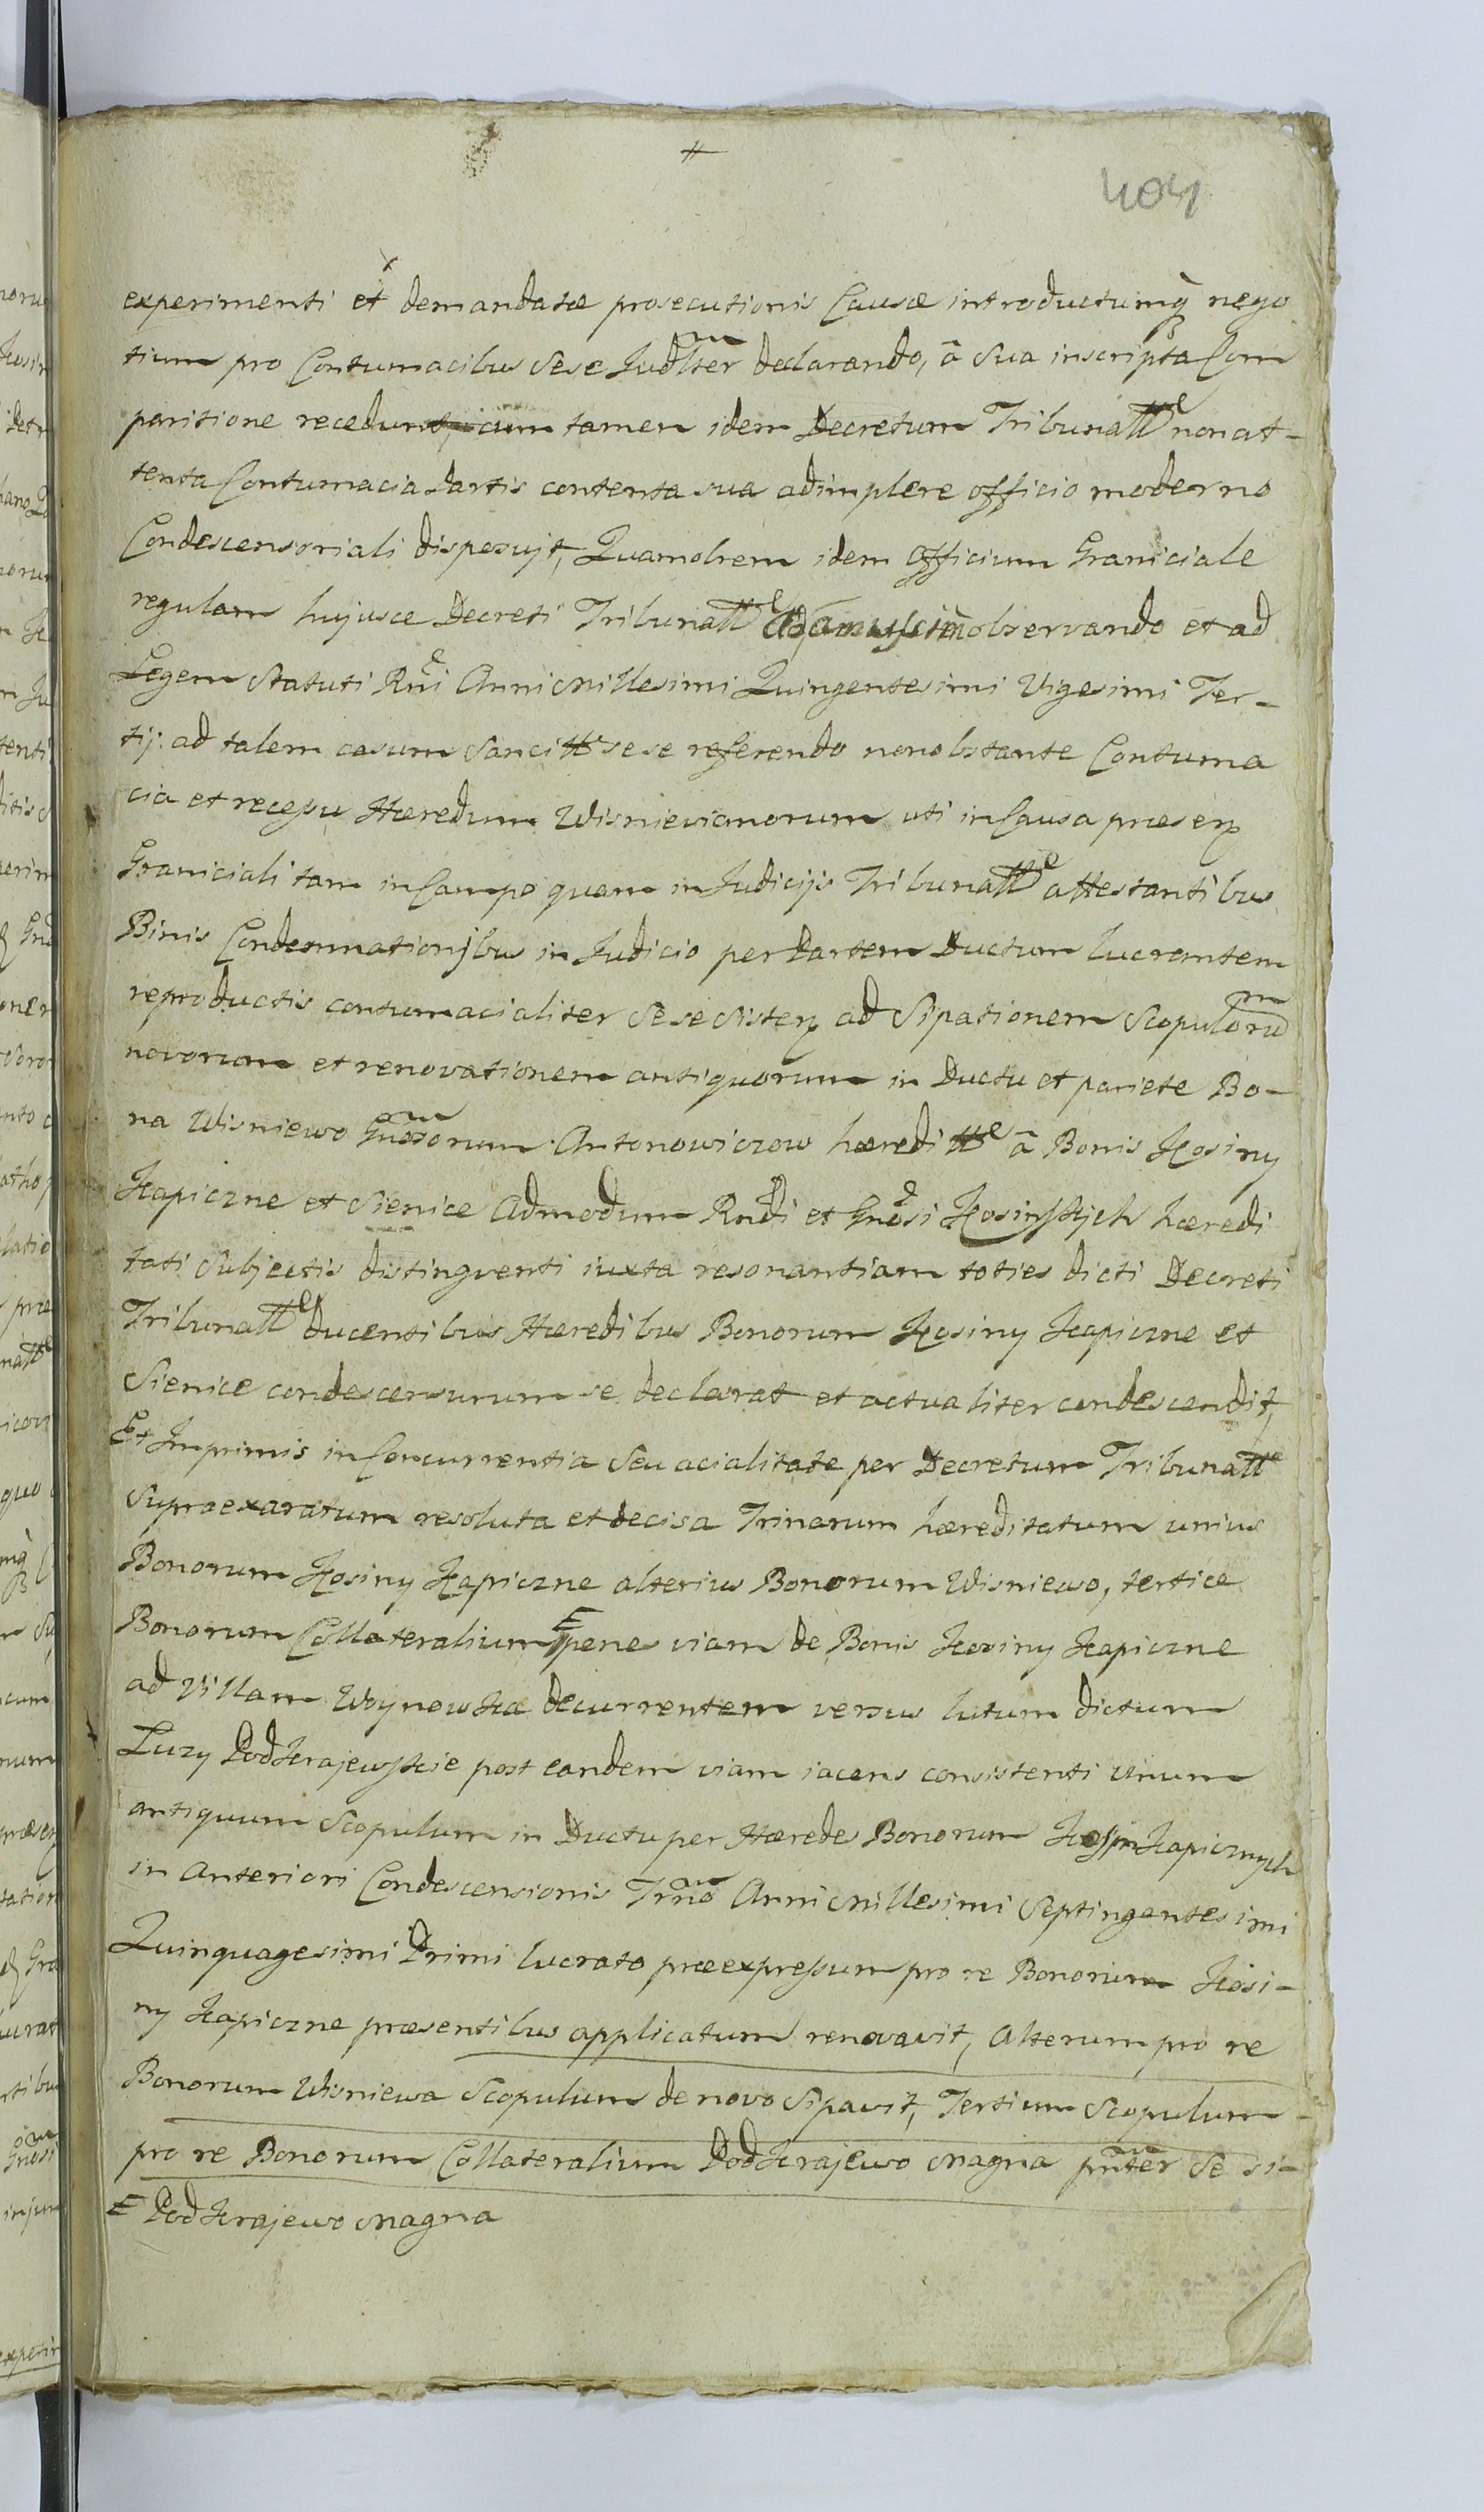 404
experimenti et demandatæ prosecutionis Causæ introductumq̀ nego
tium pro Contumacibus Sese Judlter declarando, â Sua inscripta Com
paritione recedunt, cum tamen idem Decretum Tribunatt̃e non at-
tenta Contumacia Partis contenta sua adimplere officio moderno
Condescensoriali disposujt, Quamobrem idem Officium Graniciale
regulam hujusce Decreti Tribunatt̃e observando et ad
Legem Statuti Rñi Anni Millesimi Quingentesimi Vigesimi Ter-
tij: ad talem casum Sancitt̃e sese referendo nonobstante Contuma
cia et recessu Hæredum Wisnievianorum uti in Causa præsen
Graniciali tam in Campo quam in Judicijs Tribunatt̃e attestantibus
Binis Condemnationjbus in Judicio per Partem Ductum lucrantem
reproductis contumacialiter Se se Sisten ad Sipationem Scopulorũ
novorum et renovationem antiquorum in Ductu et pariete Bo-
na Wisniewo Gnosorum Antonowiczow hæreditt̃e â Bonis Kosiny
Kapiczne et Sienice Admodum Rndi et Gnosi Kosinskich hæredi
tati Subjectis distingventi iuxta resonantiam toties dicti Decreti
Tribunatt̃e ducentibus Hæredibus Bonorum Kosiny Kapiczne et
Sienice condescensurum se declarat et actualiter condescendit,
Et Imprimis in Concurrentia Seu acialitate per Decretum Tribunatt̃e
Supraexaratum resoluta et decisa Trinarum hæreditatum unius
Bonorum Kosiny Kapiczne alterius Bonorum Wisniewo, tertiæ
Bonorum Collateralium penes viam de Bonis Kosiny Kapiczne
ad Villam Woynowkæ decurrentem versus lutum dictum
Luzy Podkrajewskie post eandem viam iacens consistenti Unum
antiquum Scopulum in Ductu per Hæredes Bonorum Kosin Kapicznych
in Anteriori Condescensionis Trñno Anni Millesimi Septingentesimi
Quinquagesimi Primi lucrato præexpressum pro re Bonorum Kosi-
ny Kapiczne præsentibus applicatum renovavit, Alterum pro re
Bonorum Wisniewa Scopulum de novo Sipavit, Tertium Scopulum
pro re Bonorum Collateralium Podkrajewo Magna pñter Se si-
Podkrajewo Magna